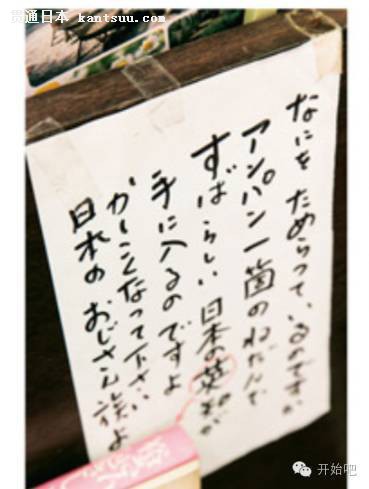 贯通日本 kantsuu.com
なにを ためらっているのですか
アンパン一箇のねだんで
すばらしい 日本の英知が
手に入るのですよ
かしこくなって下さい
日本の おじさん族よ
开始吧